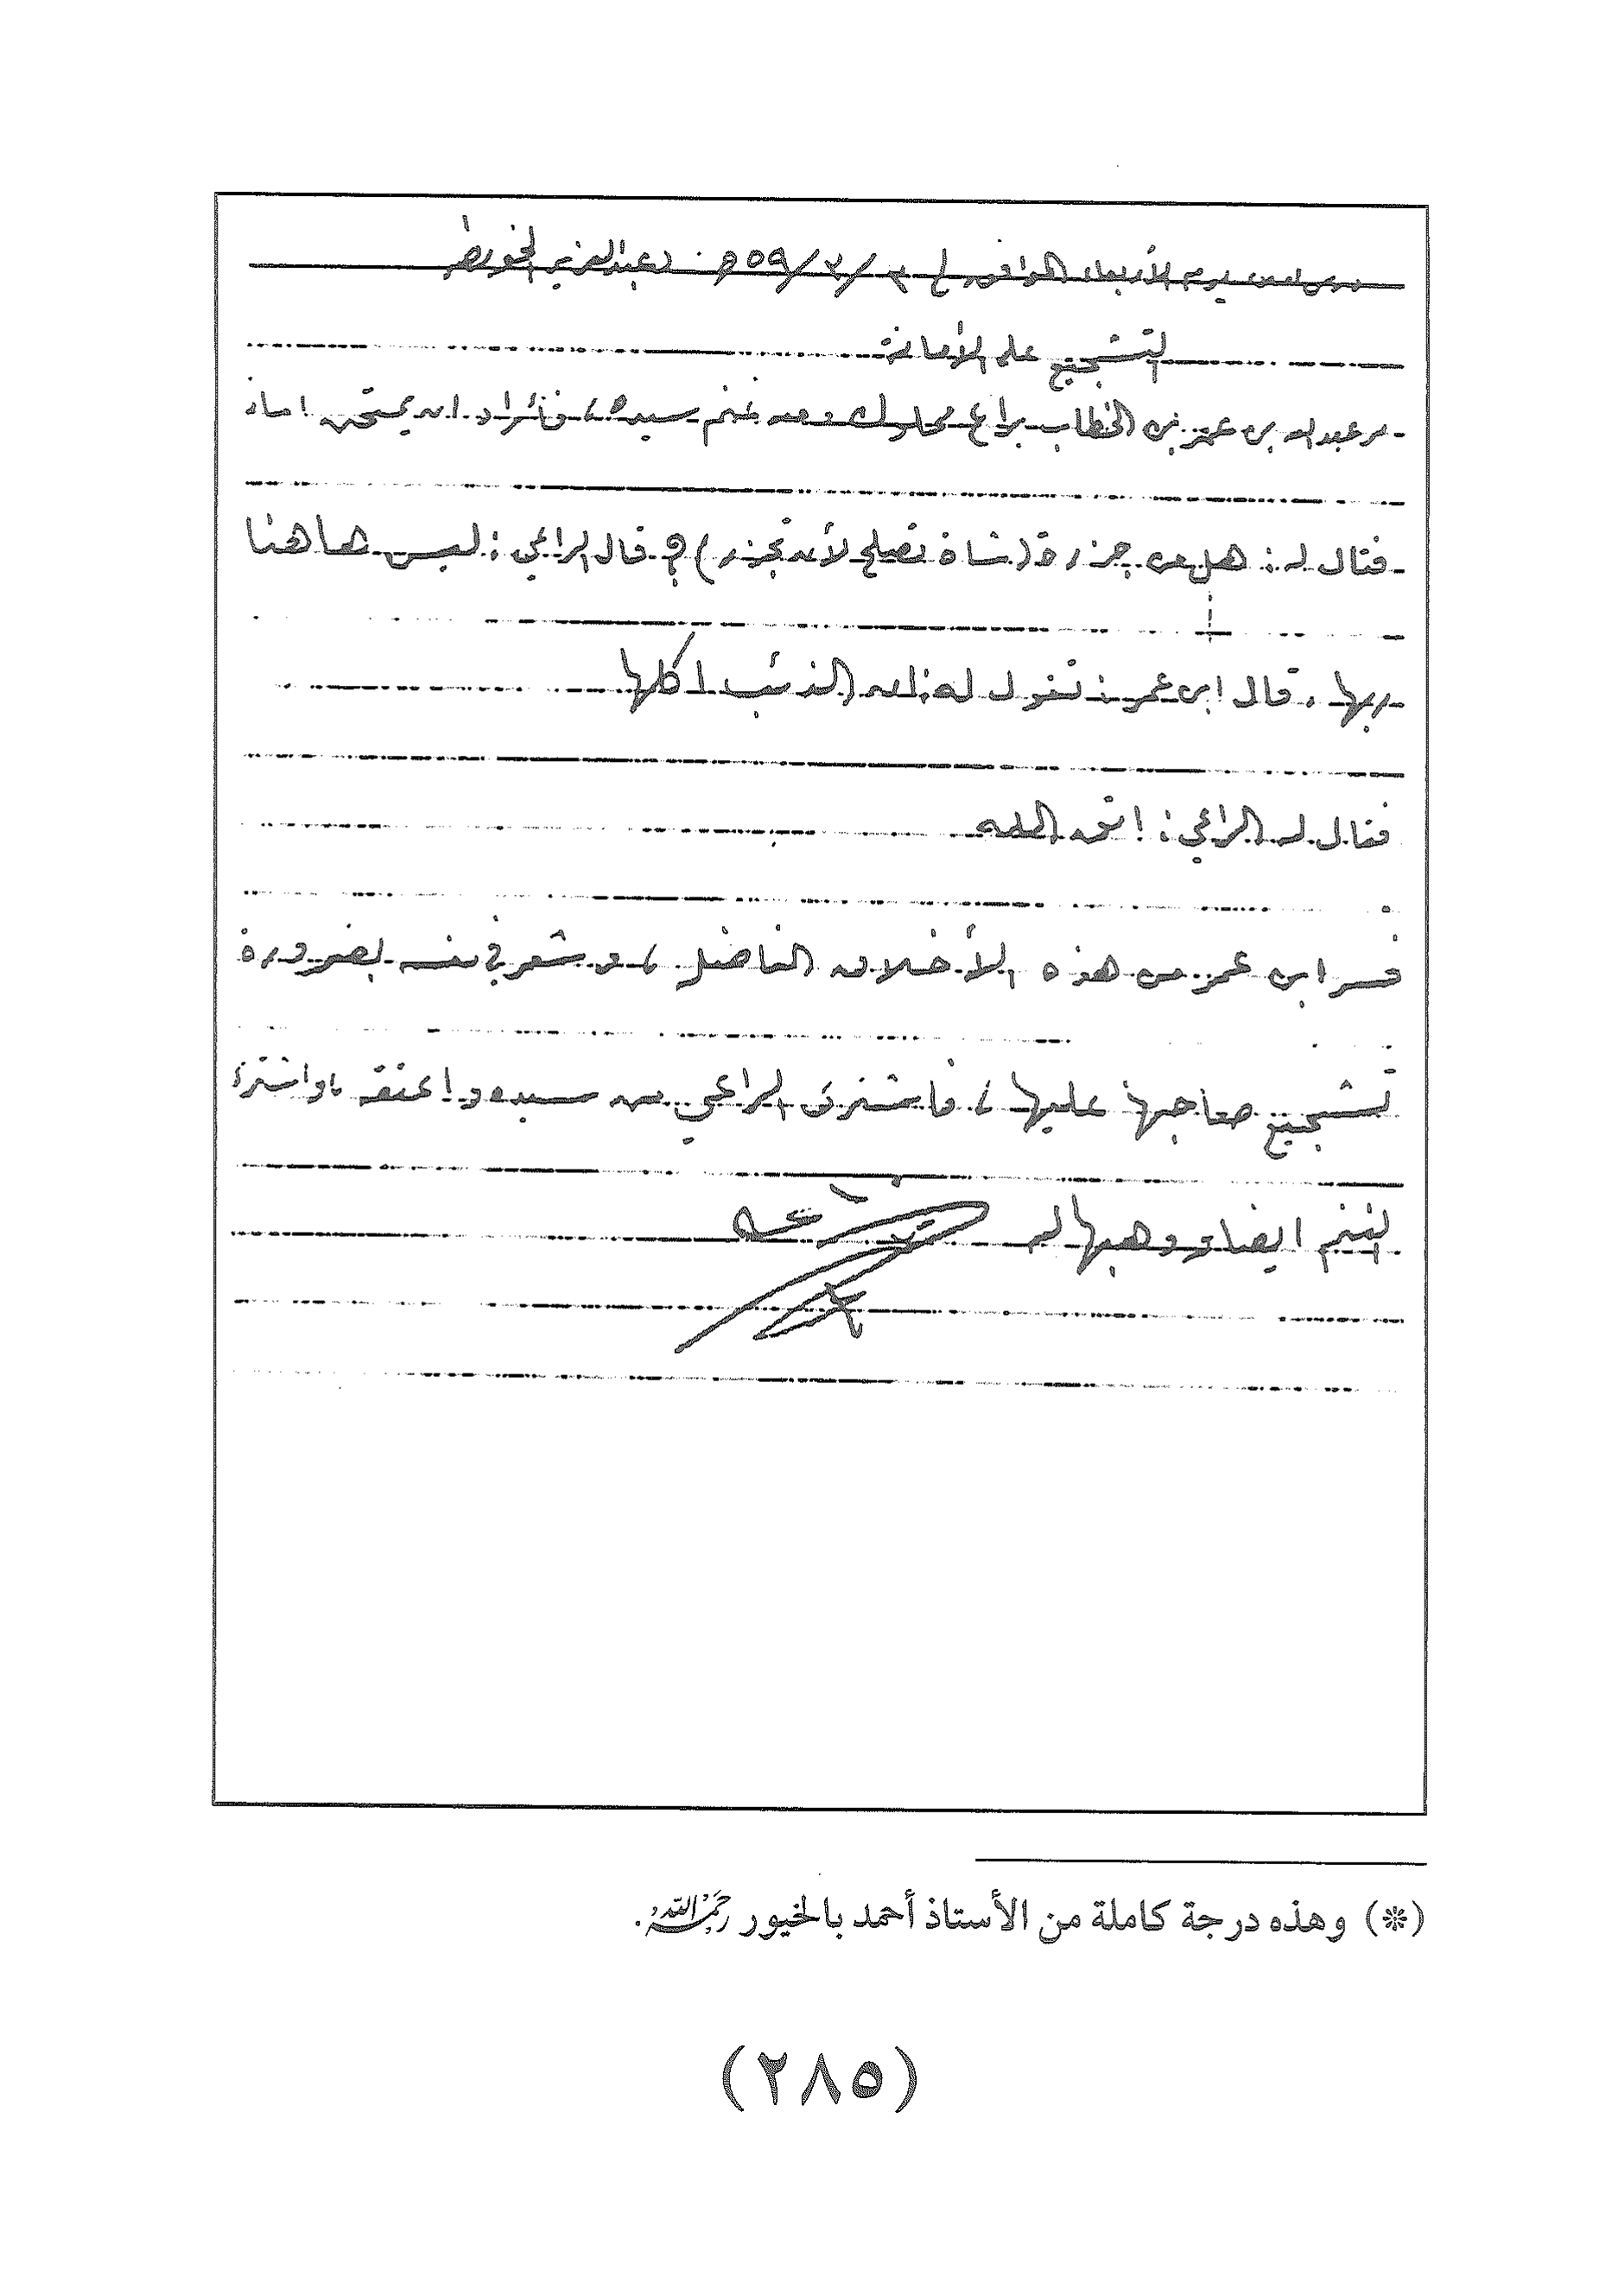 درس امس يوم الأربعاء الموافق ٤ / ٣ / ٥٩ هـ . عبدالعزيز الخويطر
التشجيع على الأمانة
مر عبدالله بن عمر بن الخطاب براع مملوك ومعه غنم سيده، فأراد ان يمتحن امانـ
فقال له: هل من جزرة (شاة تصلح لأن تجزر) ؟ قال الراعي: ليس هاهنا
ربها . قال ابن عمر: تقول له: ان الذئب اكلها
فقال له الراعي: اتق الله
فسر ابن عمر من هذه الأخلاق الفاضل، وشعر في نفسه بضرورة
تشجيع صاحبها عليها، فاشترى الراعي من سيده واعتقه، واشترى
الغنم ايضا ووهبها له
(*) وهذه درجة كاملة من الأستاذ أحمد بالخيور رحمه الله.
(٢٨٥)